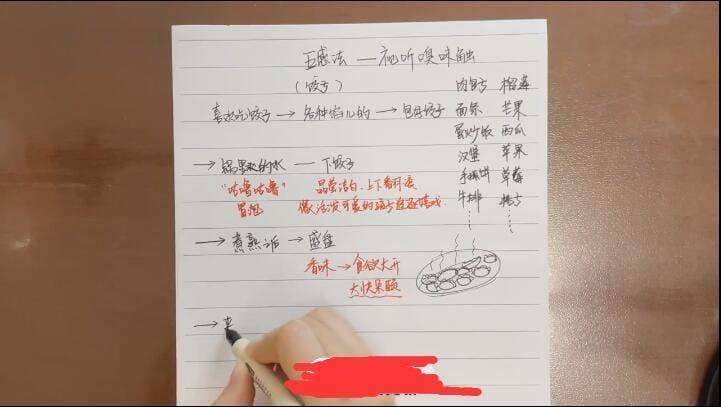 五感法 — 视听嗅味触
(饺子)
喜欢吃饺子 → 各种馅儿的 → 包好饺子
→ 锅里的水 — 下饺子
"咕噜咕噜" 晶莹洁白、上下翻滚
冒泡 像活泼可爱的孩子在玩嬉戏.
→ 煮熟之后 → 盛盘
香味 → 食欲大开
大快朵颐
→ 夹
肉包子 榴莲
面条 芒果
蛋炒饭 西瓜
汉堡 苹果
手抓饼 草莓
牛排 桃子
…… ……